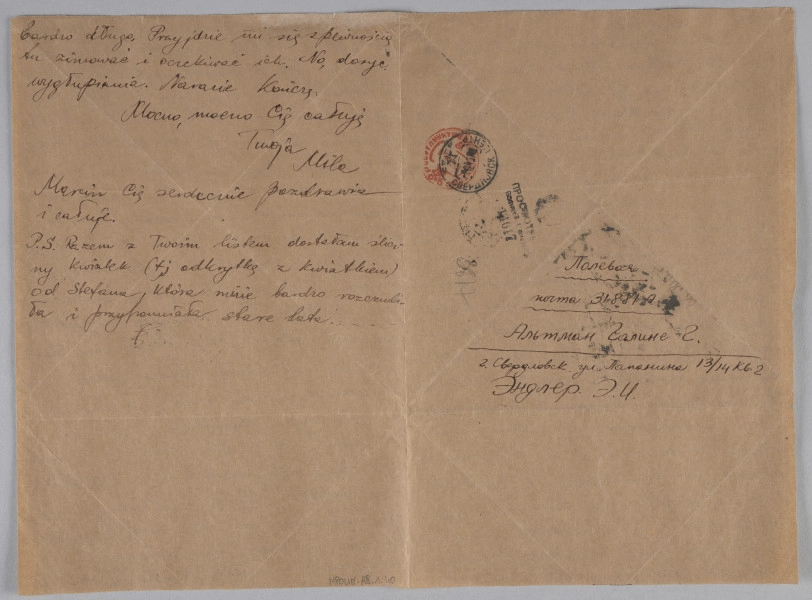 bardzo długo, Przyjdzie mi się z pewnością
tu zimować i oczekiwać ich. No, dosyć
wygłupiania. Narazie Kończę.
Mocno, mocno Cię całuję
Twoja
Mila
Marcin Cię serdecznie pozdrawia
i całuje.
P.S. Razem z Twoim listem dostałam ślicz-
ny kwiatek (tj odkrytkę z kwiatkiem)
od Stefana, która mnie bardzo rozczuli-
ła i przypomniała stare lata.....
Полевая
почта 31881 А.
Альтман Галине С.
г. Свердловск ул. Папанина 13/14 кв 2
Эндлер Э.И.